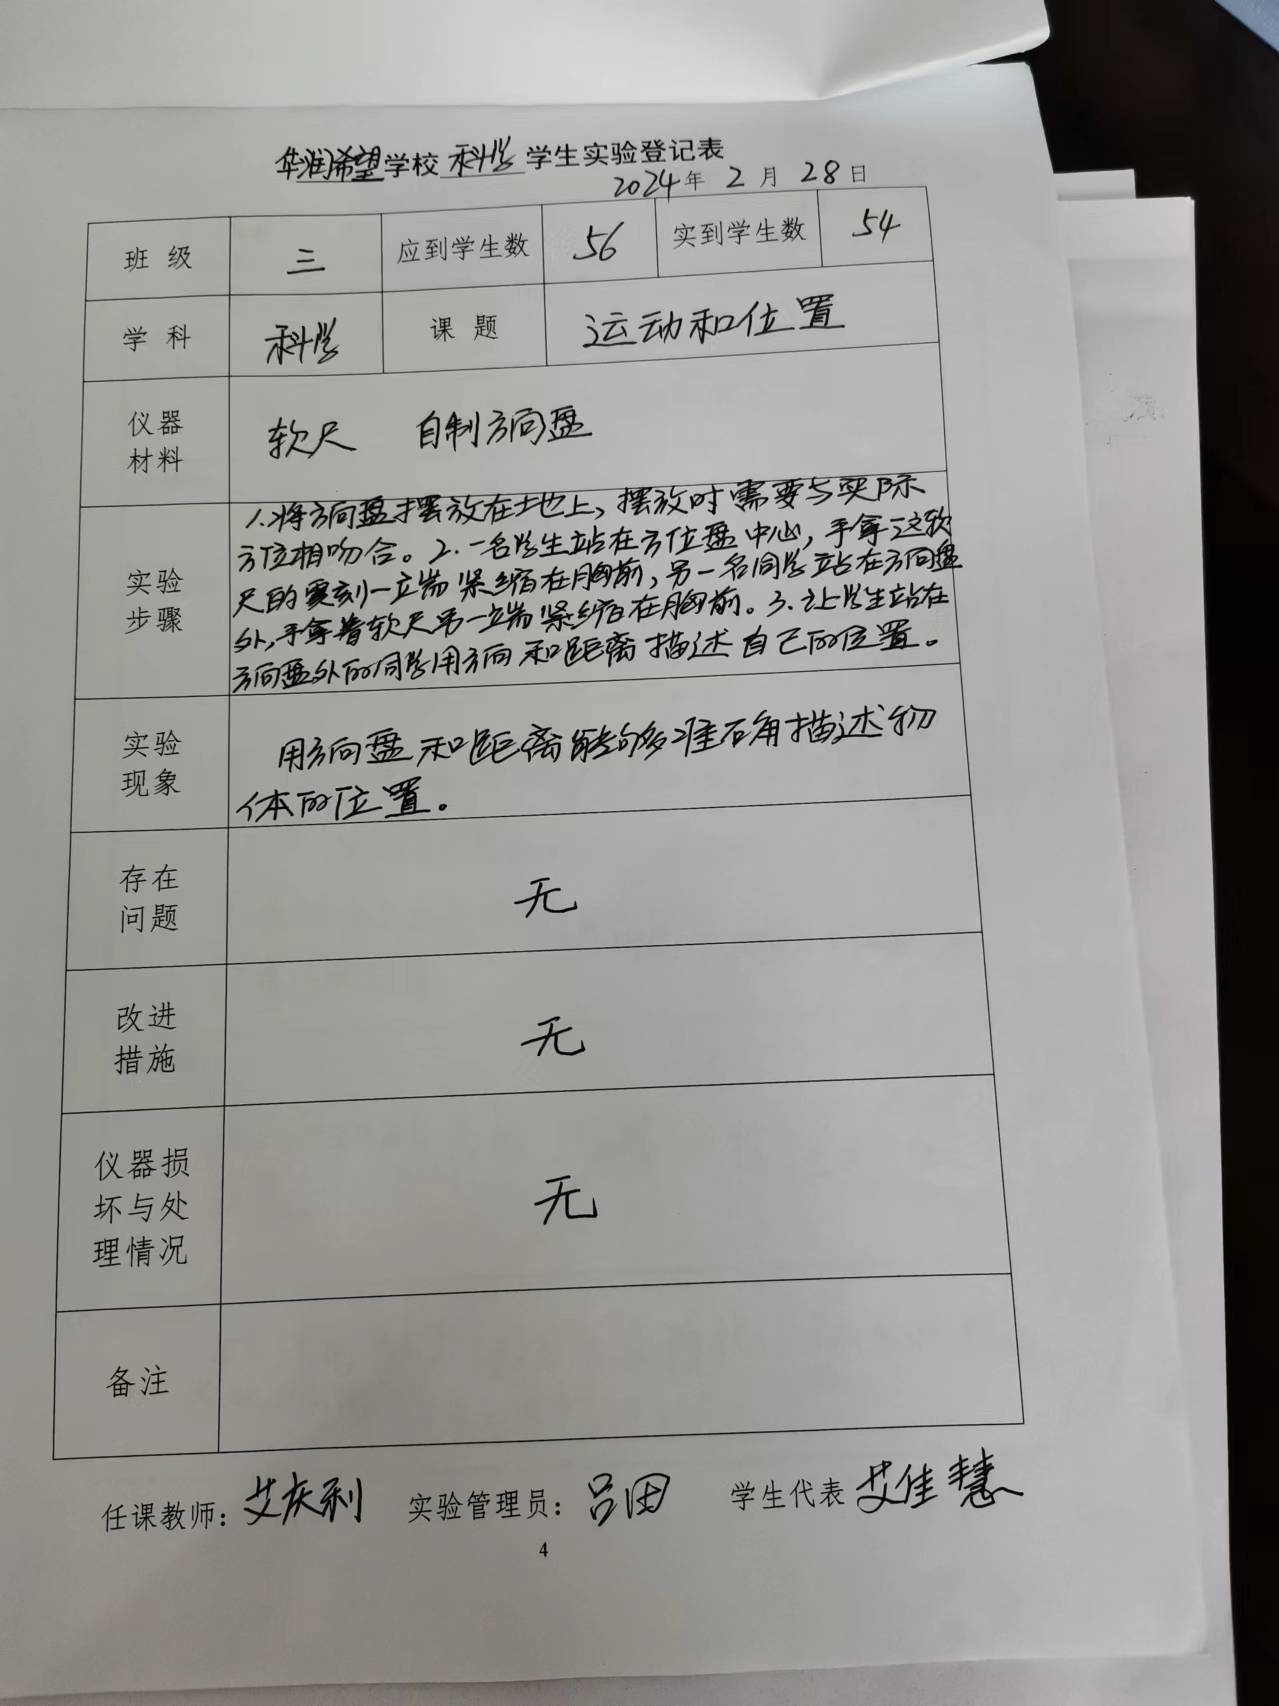 华润希望学校科学学生实验登记表
2024年2月28日
班级 三 应到学生数 56 实到学生数 54
学科 科学 课题 运动和位置
仪器材料 软尺 自制方向盘
实验步骤
1.将方向盘摆放在土地上,摆放时需要与实际
方位相吻合。2.一名学生站在方位盘中心,手拿这软
尺的零刻一端紧缩在胸前,另一名同学站在方向盘
外,手拿着软尺另一端紧缩在胸前。3.让学生站在
方向盘外的同学用方向和距离描述自己的位置。
实验现象
用方向盘和距离能够准确描述物
体的位置。
存在问题 无
改进措施 无
仪器损坏与处理情况 无
备注
任课教师:艾庆利 实验管理员:吕田 学生代表 艾佳慧
4